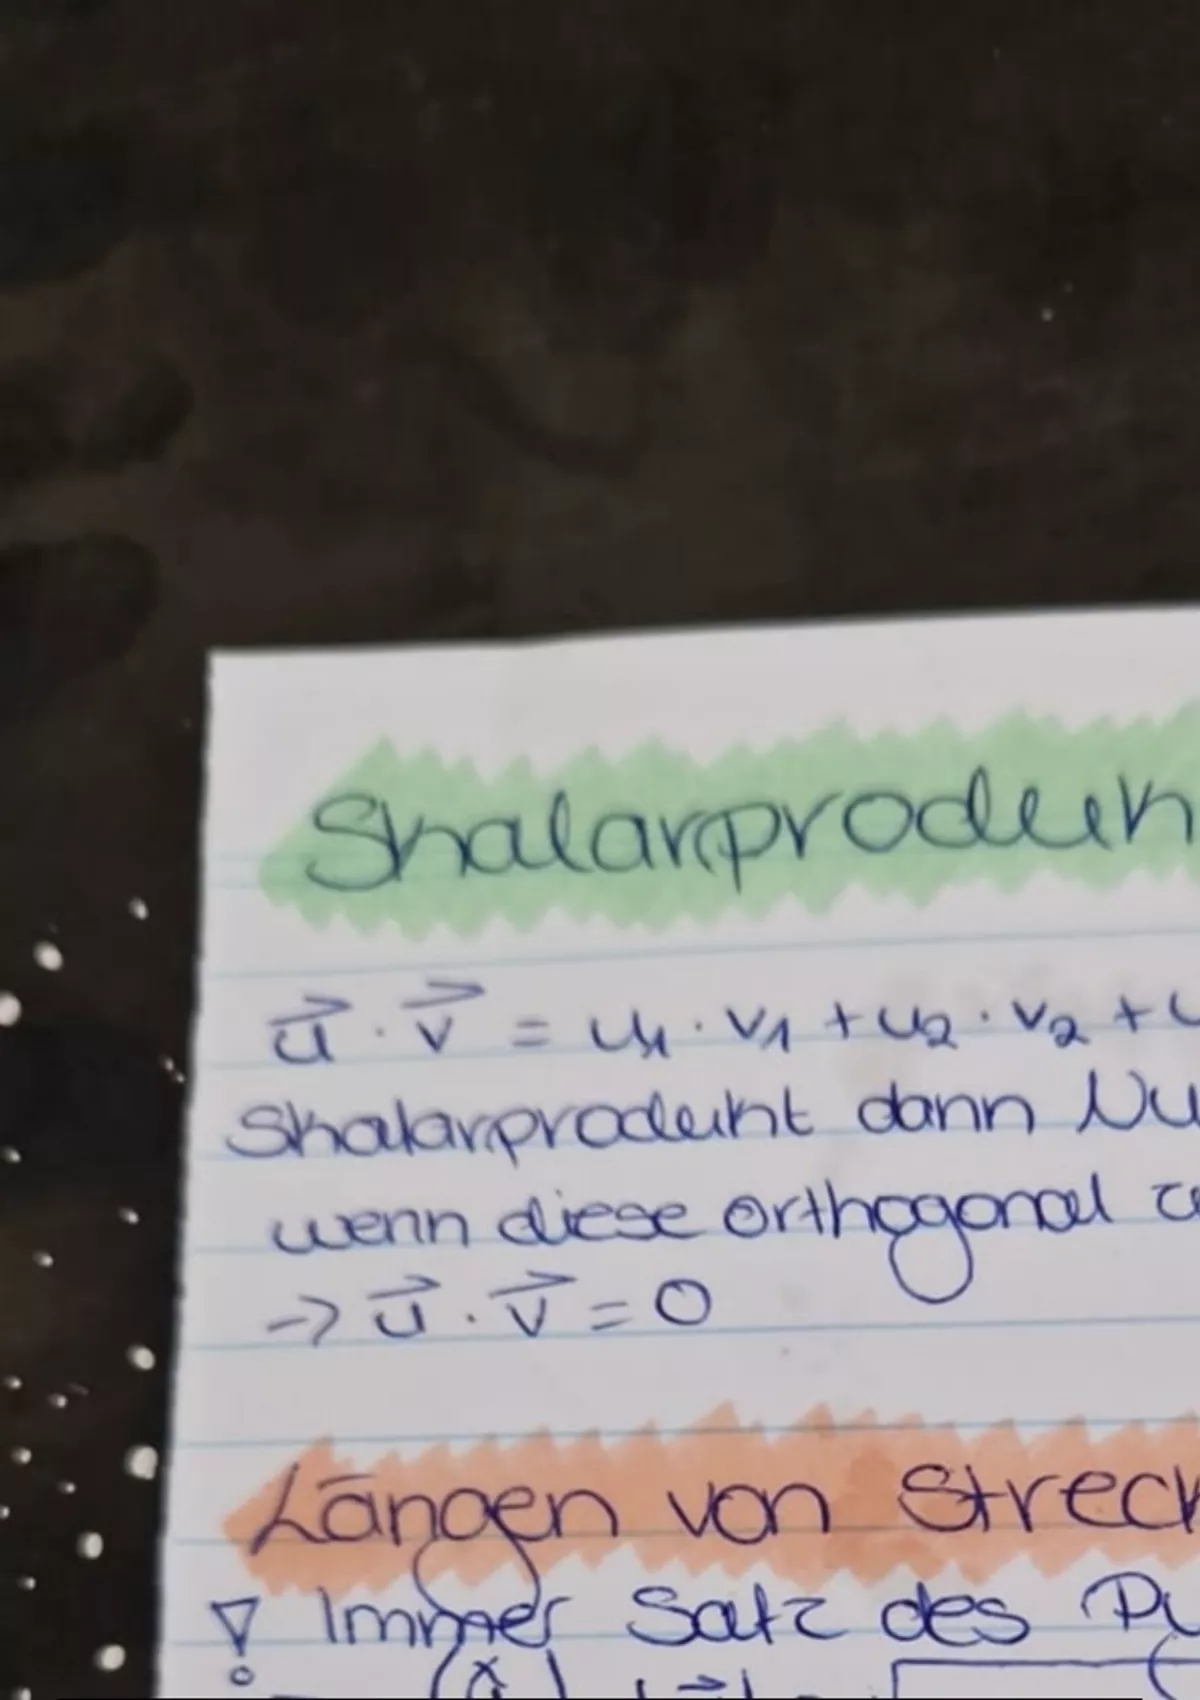 Skalarproduk
u⃗ · v⃗ = u₁ · v₁ + u₂ · v₂ +
Skalarprodukt dann Nu
wenn diese orthogonal z
-> u⃗ · v⃗ = 0
Längen von Streck
! Immer Satz des Py